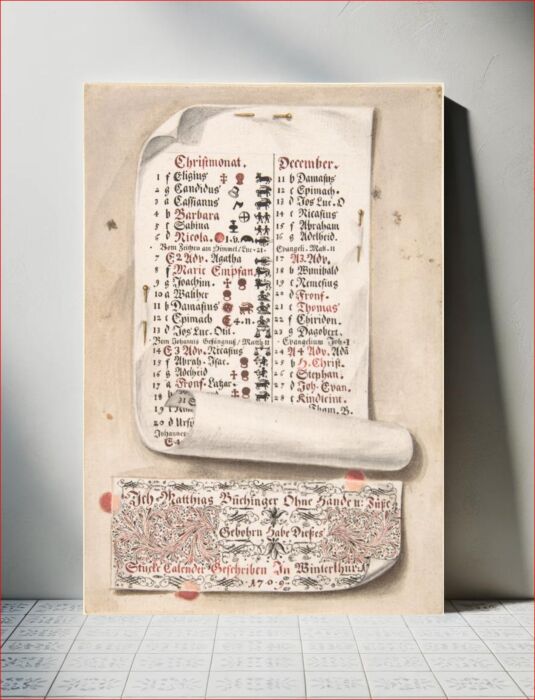 Christmonat.
1 f Eligius
2 g Candidus
3 a Cassianus
4 b Barbara
5 c Sabina
6 d Nicola. 1. v.
Vom Zeichen am Himmel/Luc. 21.
7 E 2 Adv. Agatha
8 f Marie Empfan.
9 g Joachim.
10 a Walther
11 b Damasius
12 c Epimach 4. n.
13 d Jos Luc. Otil.
Vom Johannis Gefängnuß/Matth 11
14 E 3 Adv. Nicasius
15 f Abrah. Isac.
16 g Adelheid
17 a Fronf. Lazar.
18 b
19 c
20 d Ursi
Johannes
E 4
December.
11 b Damasius
12 c Epimach.
13 D Jos Luc. O
14 c Nicasius
15 f Abraham
16 g Adelheid.
Evangeli. Matt. 11
17 A 3. Adv.
18 b Wunibald
19 c Nemesius
20 d Fronf.
21 e Thomas
22 f Chiridon.
23 g Dagobert.
Evangelium Joh. 1
24 A 4 Adv. Ada
25 b H. Christ.
26 c Stephan.
27 D Joh. Evan.
28 e Kindleint.
Thom. B.
Ich Matthias Büchinger Ohne Handen: Füße
Gebohrn Habe Dießes
Stucke Calender Geschriben In Winterthur.
1709